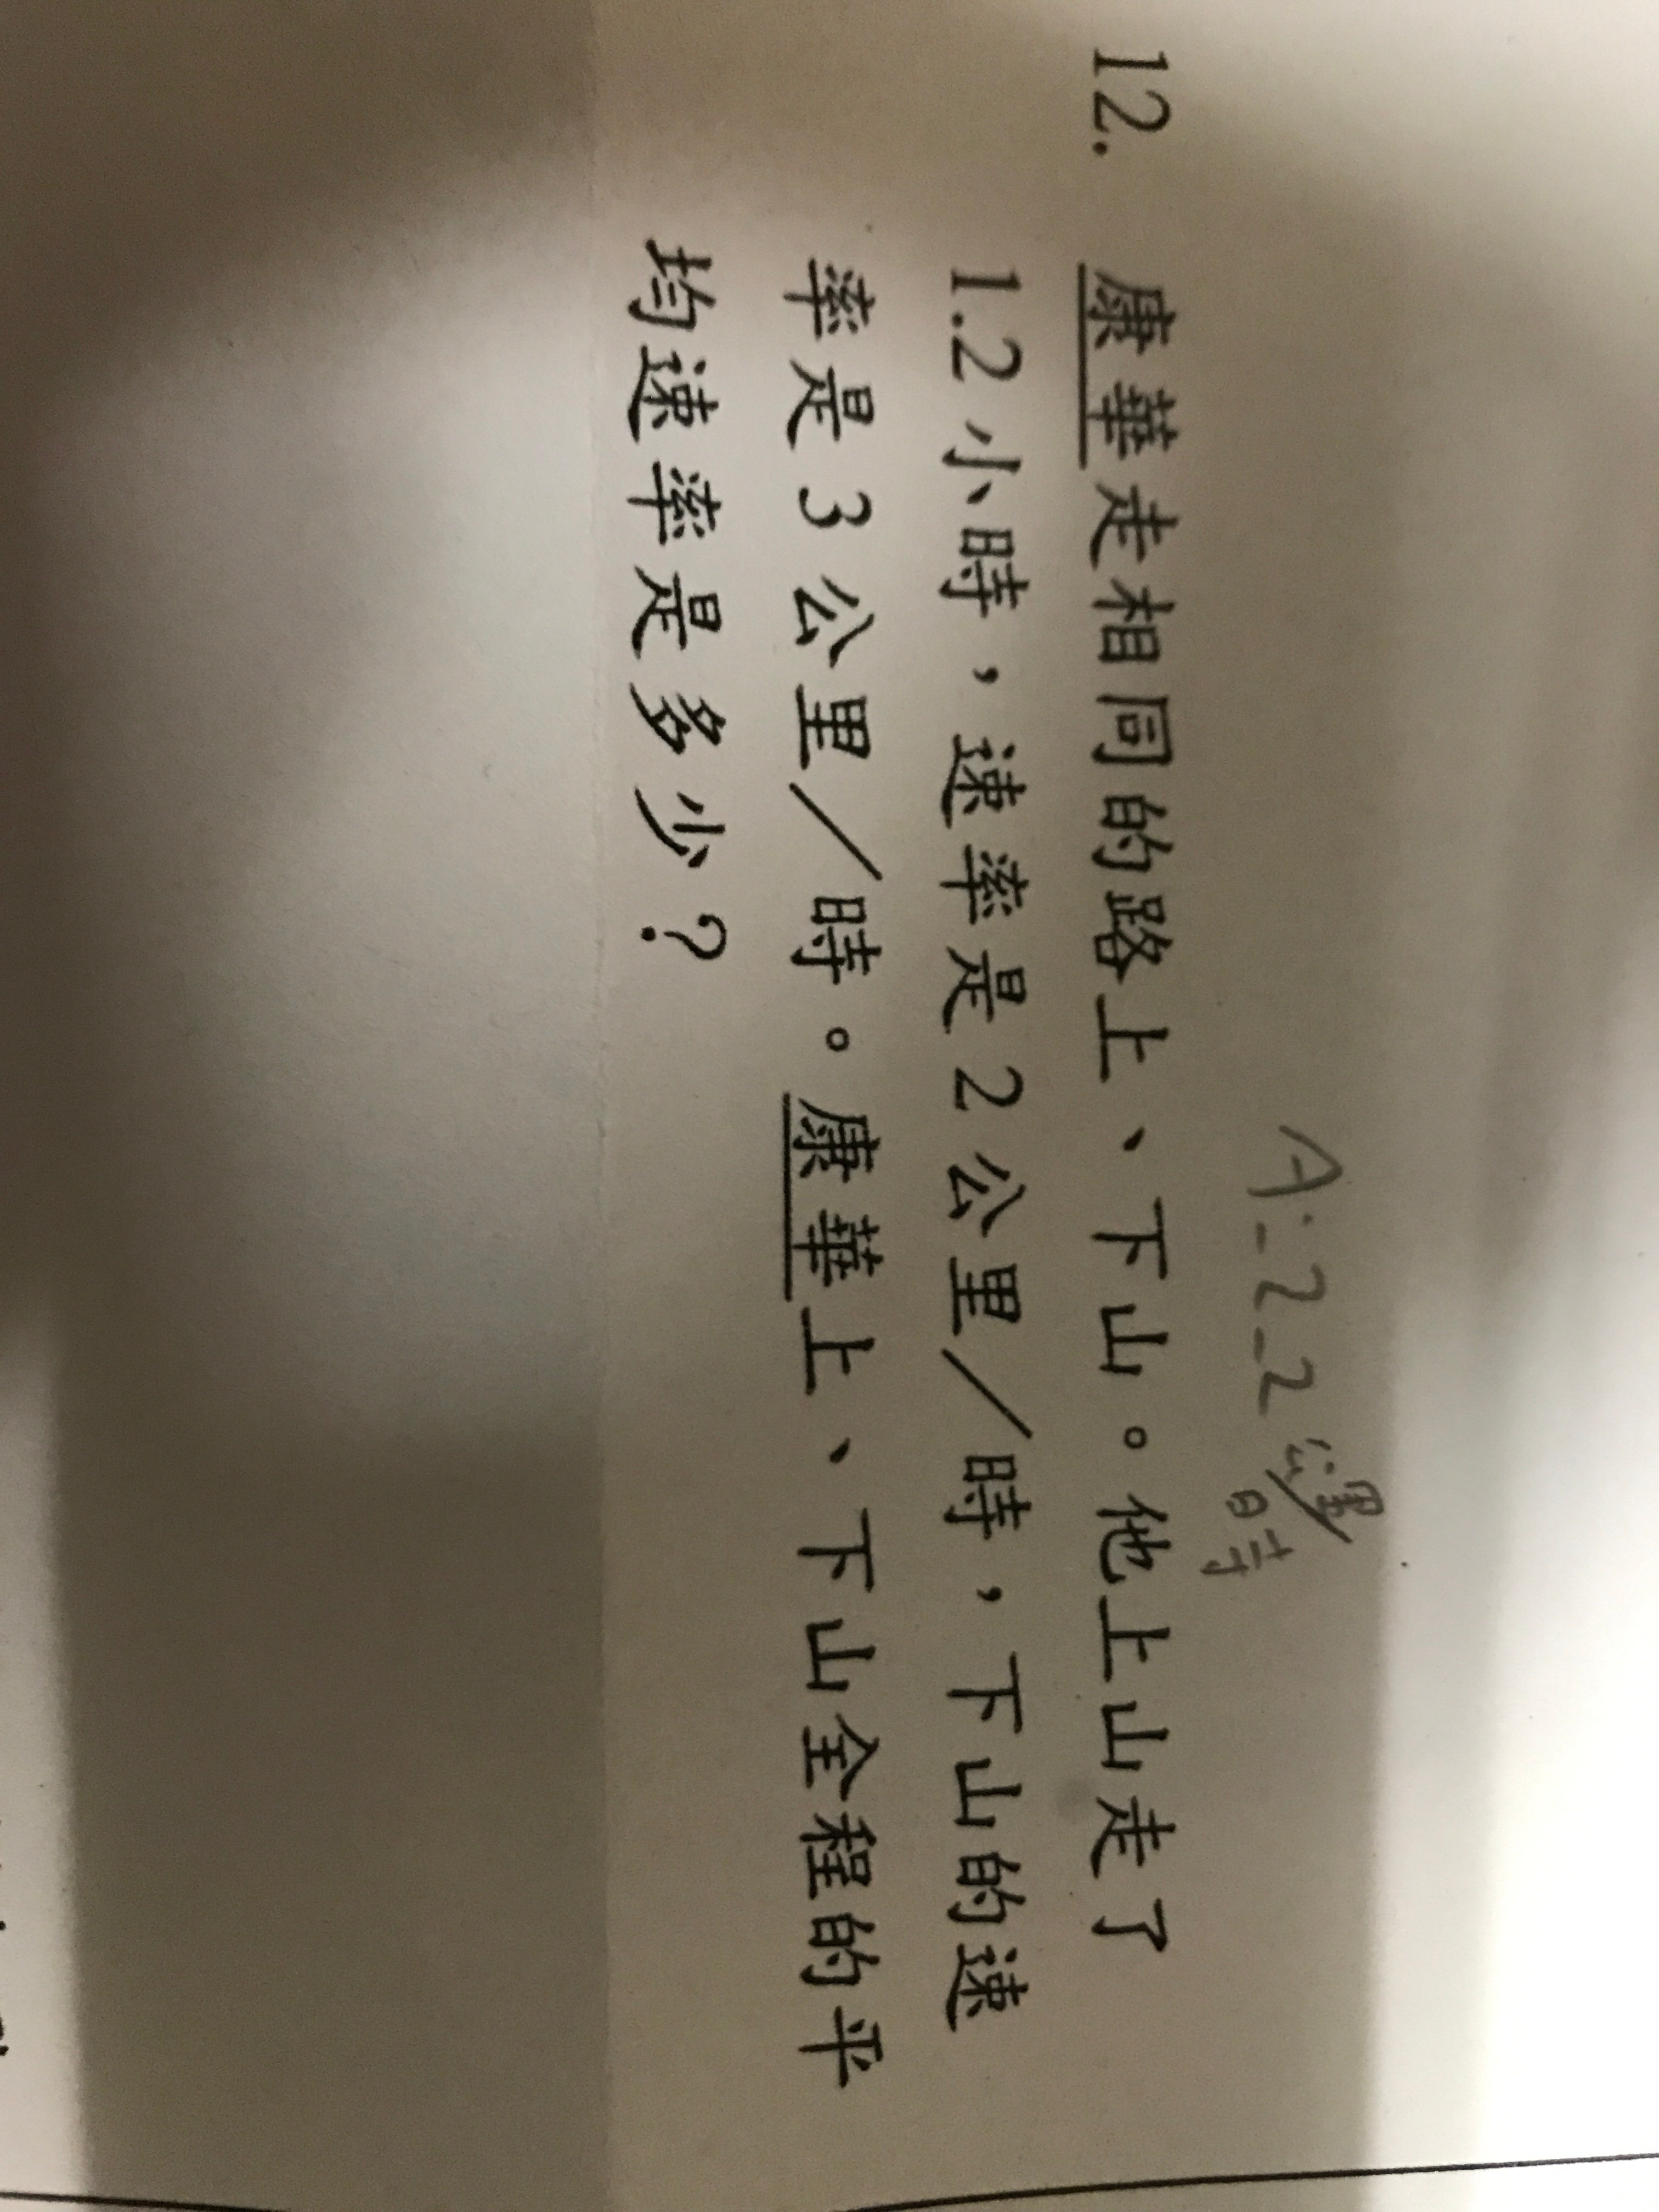 A:22公里/時
12. 康華走相同的路上、下山。他上山走了
1.2小時，速率是2公里／時，下山的速
率是3公里／時。康華上、下山全程的平
均速率是多少？